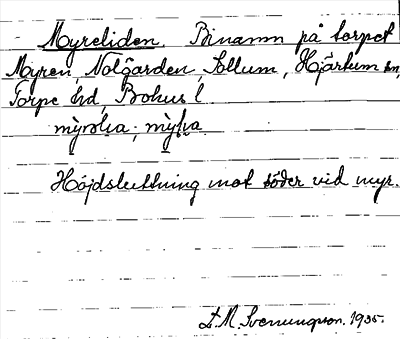 Myreliden. Binamn på torpet
Myren, Nolgården, Sollum, Hjärtum sn,
Torpe hd, Bohus l.
Höjdsluttning mot söder vid myr.
M. Svenungsson. 1935.